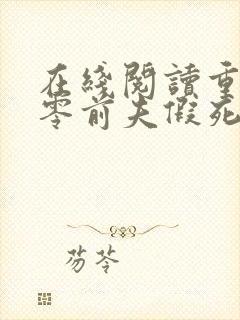 在綫閱讀重
零前夫假死
芴苓